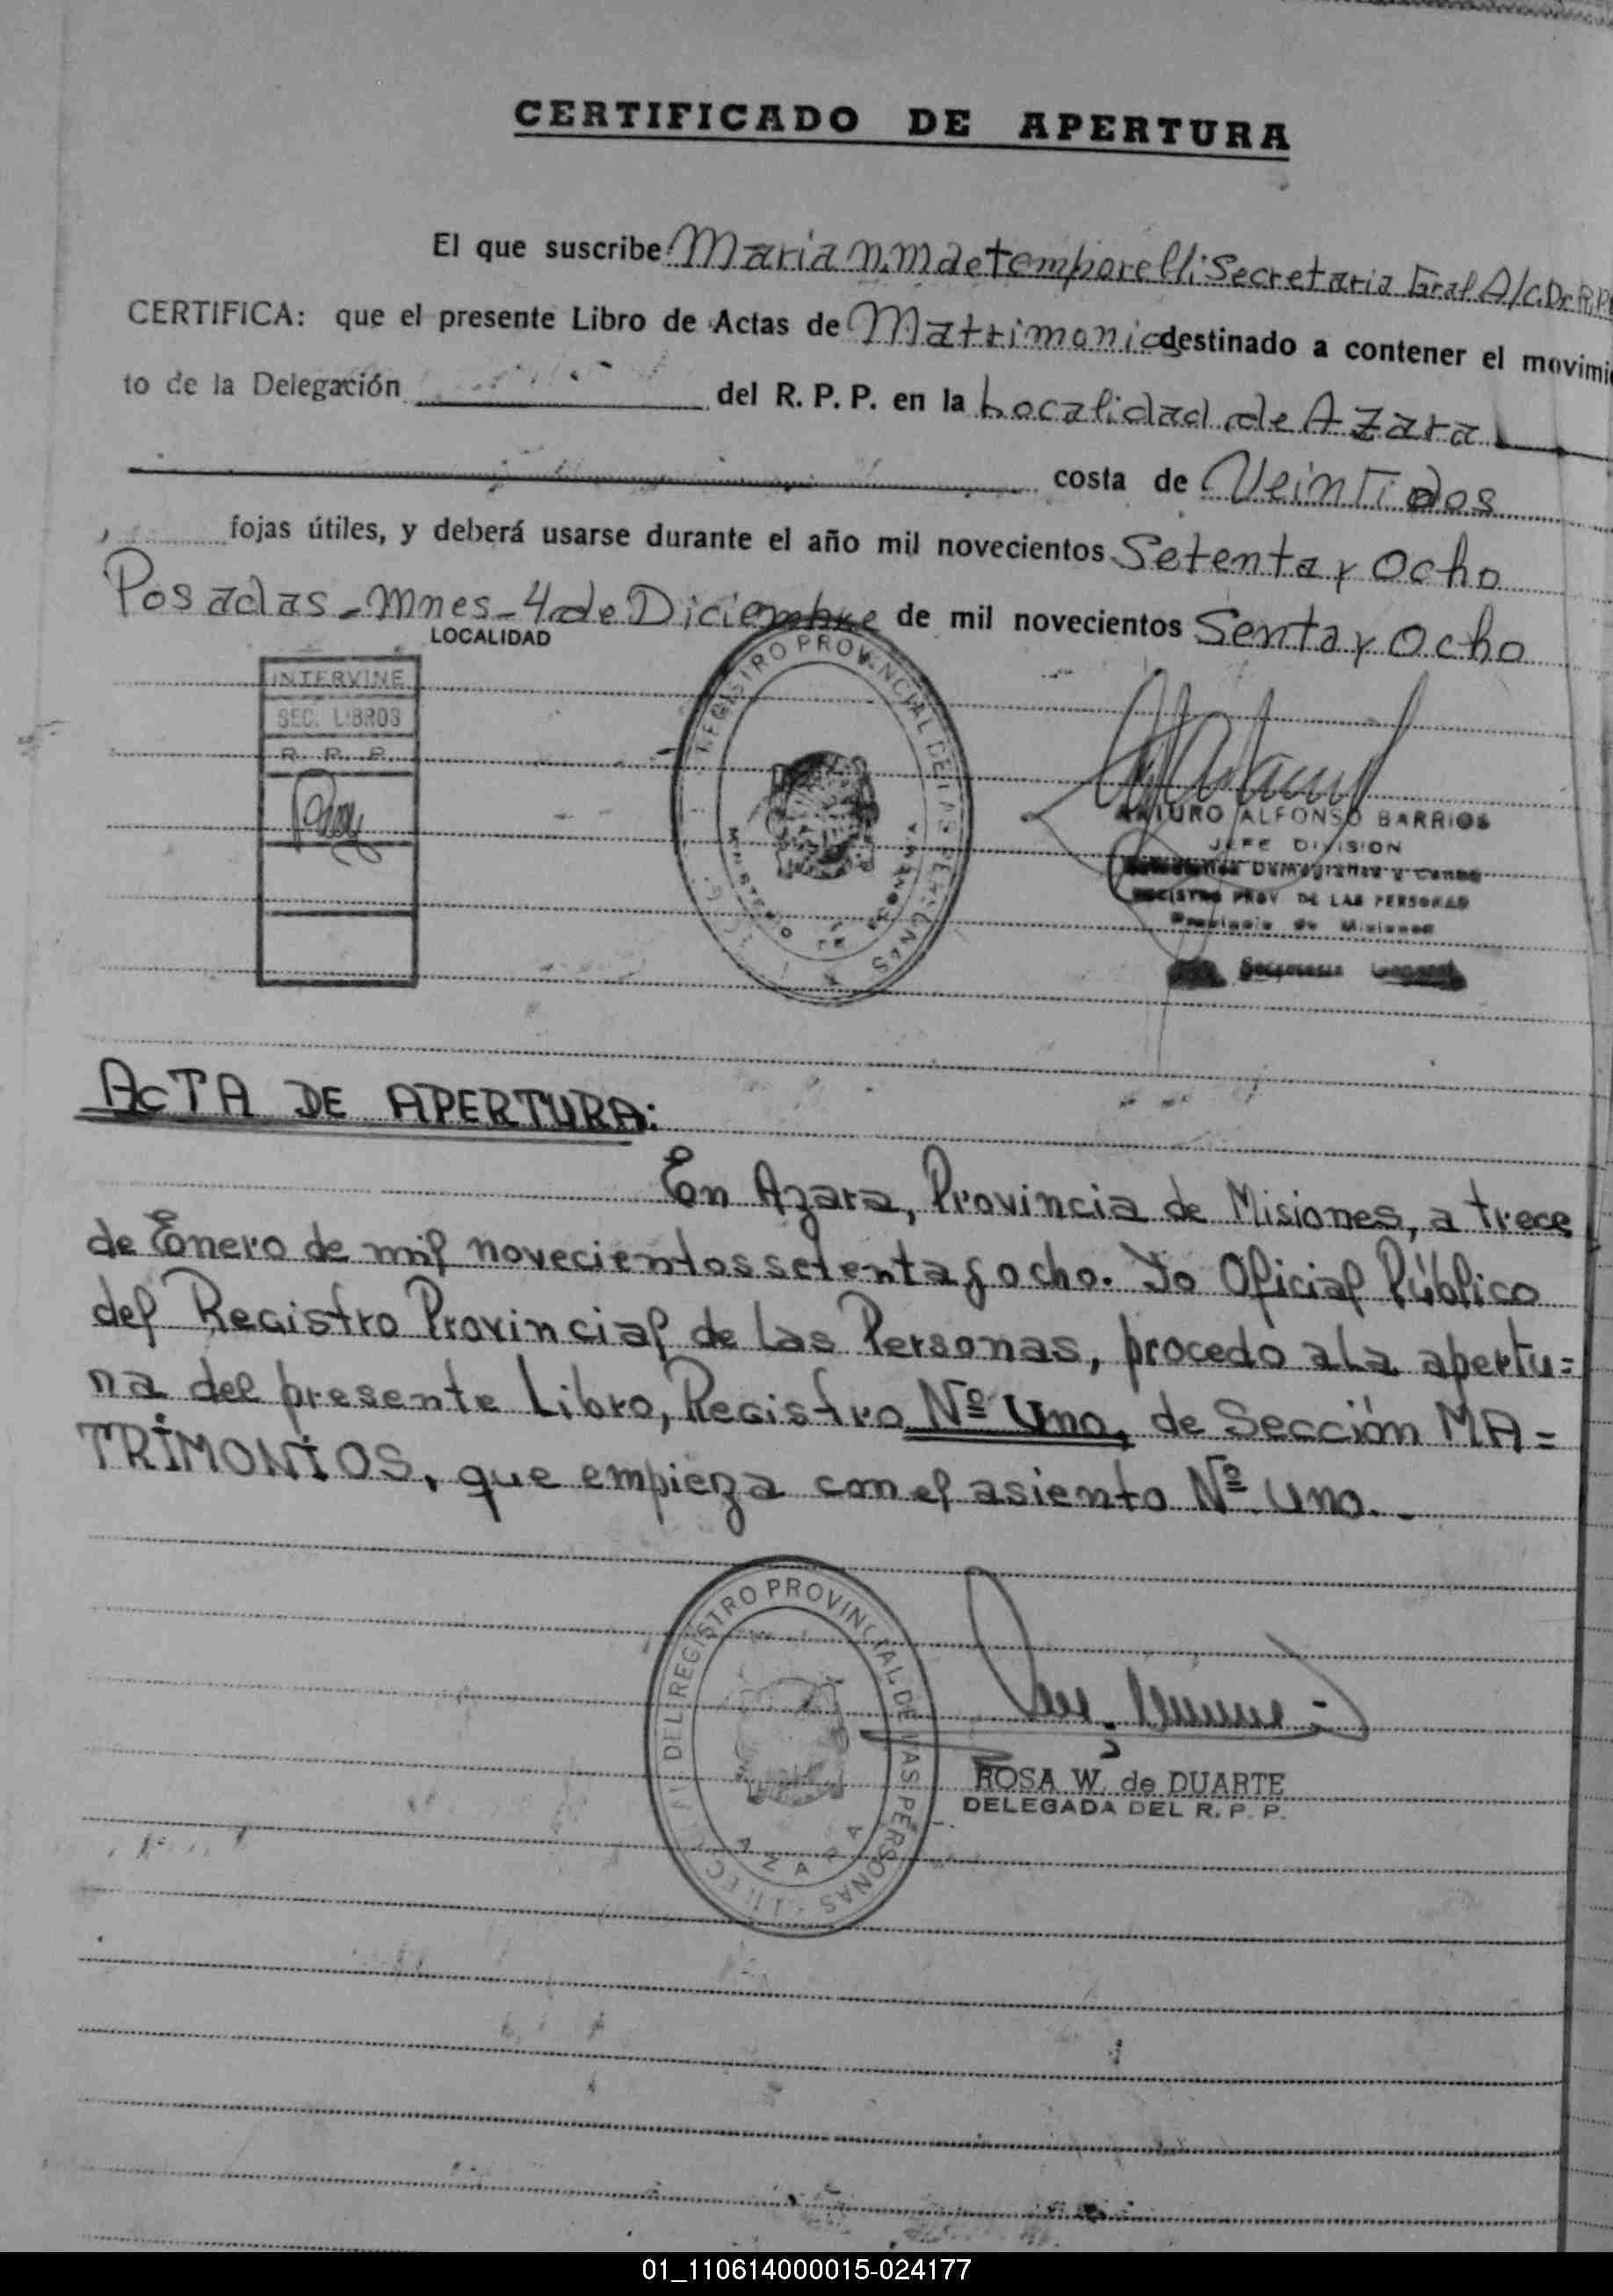 CERTIFICADO DE APERTURA
El que suscribe Maria n.m de temporelli Secretaria Gral A/C.Dc R.P.
CERTIFICA: que el presente Libro de Actas de Matrimonios destinado a contener el movimi
to de la Delegación del R. P. P. en la Localidad de Azara
costa de VeinTi dos
fojas útiles, y deberá usarse durante el año mil novecientos Setenta y Ocho
Posadas - Mnes - 4 de Diciembre de mil novecientos Senta y Ocho
LOCALIDAD
INTERVINE
SEC. LIBROS
R. P. P.
REGISTRO PROVINCIAL DE LAS PERSONAS
MINISTERIO DE
ARTURO ALFONSO BARRIOS
JEFE DIVISION
Demográfica y Censo
REGISTRO PROV. DE LAS PERSONAS
Provincia de Misiones
Secretaria General
ACTA DE APERTURA:
En Azara, Provincia de Misiones, a trece
de Enero de mil novecientos setenta y ocho. Yo Oficial Público
del Registro Provincial de las Personas, procedo a la apertu=
ra del presente Libro, Registro Nº Uno, de Sección MA=
TRIMONIOS, que empieza con el asiento Nº Uno.-
DEL REGISTRO PROVINCIAL DE LAS PERSONAS
AZARA
ROSA W. de DUARTE
DELEGADA DEL R. P. P.
01_110614000015-024177